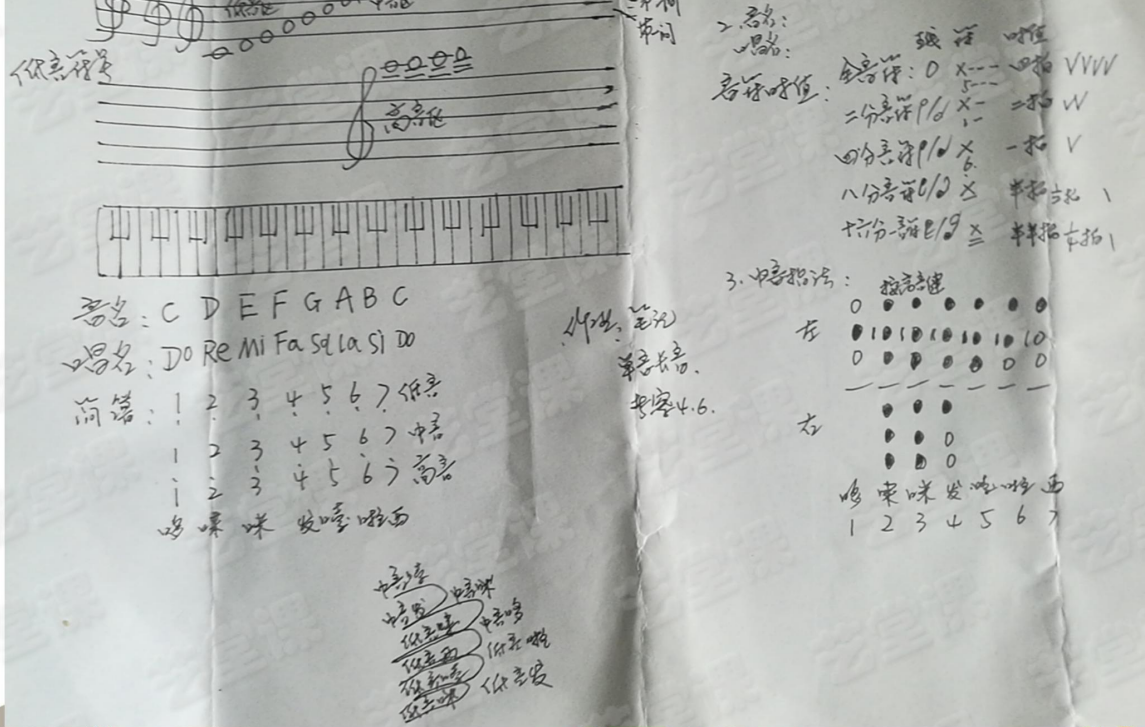 低音
中音
单词
低音符号
高音
2. 音名：
唱名：
线 符 时值
音符时值：
全音符：O X--- 四拍 VVVV
5---
二分音符 X- 二拍 VV
1--
四分音符 X 一拍 V
6
八分音符 X 半拍
十六分音符 X
音名：C D E F G A B C
唱名：Do Re Mi Fa Sol La Si Do
简谱：1 2 3 4 5 6 7 低音
1 2 3 4 5 6 7 中音
1 2 3 4 5 6 7 高音
哆 唻 咪 发 嗦 啦 西
作业：笔记
单音长音.
考察4.6.
3. 中音指法：
按高音键
左
右
哆 唻 咪 发 嗦 啦 西
1 2 3 4 5 6 7
中音嗦
中音咪
中音发
中音哆
低音西
低音啦
低音嗦
低音发
低音咪